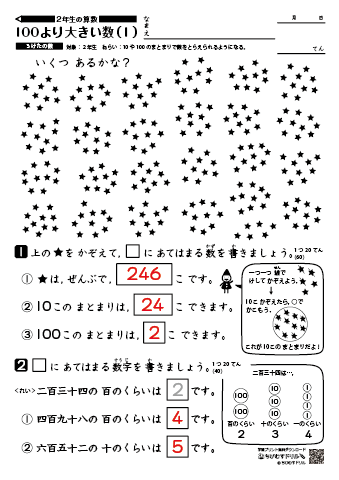 2年生の算数
なまえ
月 日
100より大きい数(1)
3けたの数 対象：2年生 ねらい：10や100のまとまりで数をとらえられるようになる。
てん
いくつ あるかな?
1 上の★を かぞえて, □に あてはまる 数を 書きましょう。 1つ20てん (60)
① ★は, ぜんぶで, 246 こ です。
② 10この まとまりは, 24 こ できます。
③ 100この まとまりは, 2 こ できます。
一つ一つ 線で
けして かぞえよう。
↓
10こ かぞえたら, ○で
かこもう。
これが10この まとまりだよ!
2 □に あてはまる 数字を 書きましょう。 1つ20てん (40)
<れい> 二百三十四の 百のくらいは 2 です。
① 四百九十八の 百のくらいは 4 です。
② 六百五十二の 十のくらいは 5 です。
二百三十四は…,
100 10 1
100 10 1
10 1
1
百のくらい 十のくらい 一のくらい
2 3 4
学習プリント無料ダウンロード
ちびむすドリル
©ちびむすドリル